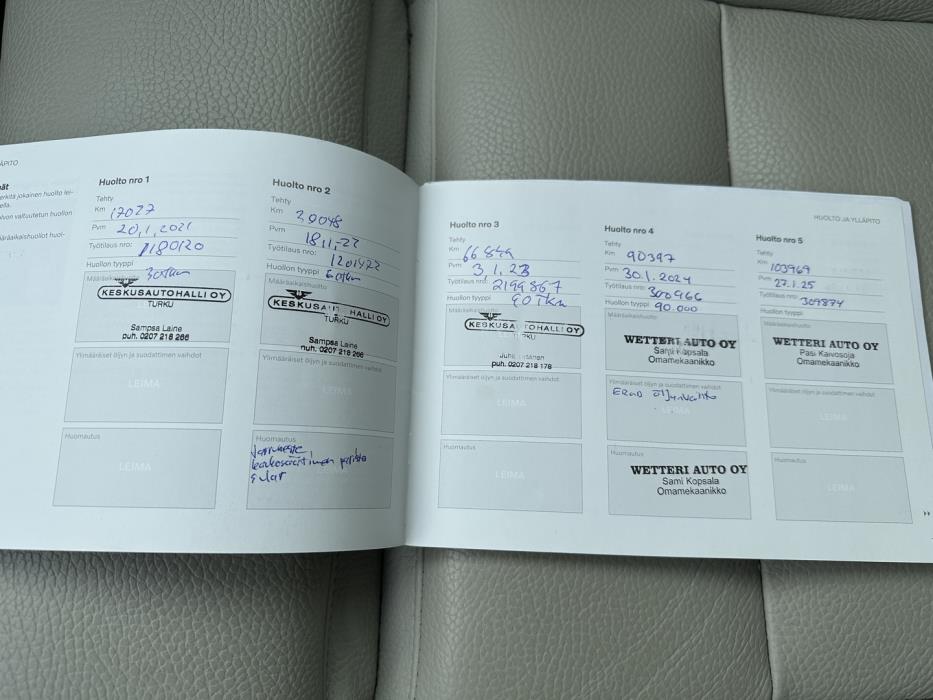 LÄPITO
HUOLTO JA YLLÄPITO
erkitä jokainen huolto lei-
Huolto nro 1
Tehty
Km 17027
Pvm 20,1,2021
Työtilaus nro: 1180120
Huollon tyyppi
Määräaikaishuolto 30tkm
KESKUSAUTOHALLI OY
TURKU
Sampsa Laine
puh. 0207 218 266
Ylimääräiset öljyn ja suodattimen vaihdot
LEIMA
Huomautus
LEIMA
Huolto nro 2
Tehty
Km 39048
Pvm 18.11,22
Työtilaus nro: 1201422
Huollon tyyppi 60tkm
Määräaikaishuolto
KESKUSAUTOHALLI OY
TURKU
Sampsa Laine
puh. 0207 218 266
Ylimääräiset öljyn ja suodattimen vaihdot
LEIMA
Huomautus
Huolto nro 3
Tehty
Km 66849
Pvm 3,1,23
Työtilaus nro: 2199867
Huollon tyyppi 90Tkm
Määräaikaishuolto
KESKUSAUTOHALLI OY
TURKU
puh. 0207 218 178
Ylimääräiset öljyn ja suodattimen vaihdot
LEIMA
Huomautus
LEIMA
Huolto nro 4
Tehty
Km 90397
Pvm 30.1.2024
Työtilaus nro: 300966
Huollon tyyppi 90.000
Määräaikaishuolto
WETTERI AUTO OY
Sami Kopsala
Omamekaanikko
Ylimääräiset öljyn ja suodattimen vaihdot
LEIMA
Huomautus
WETTERI AUTO OY
Sami Kopsala
Omamekaanikko
Huolto nro 5
Tehty
Km 103969
Pvm 27.1.25
Työtilaus nro: 309874
Huollon tyyppi
Määräaikaishuolto
WETTERI AUTO OY
Pasi Kaivosoja
Omamekaanikko
Ylimääräiset öljyn ja suodattimen vaihdot
LEIMA
Huomautus
LEIMA